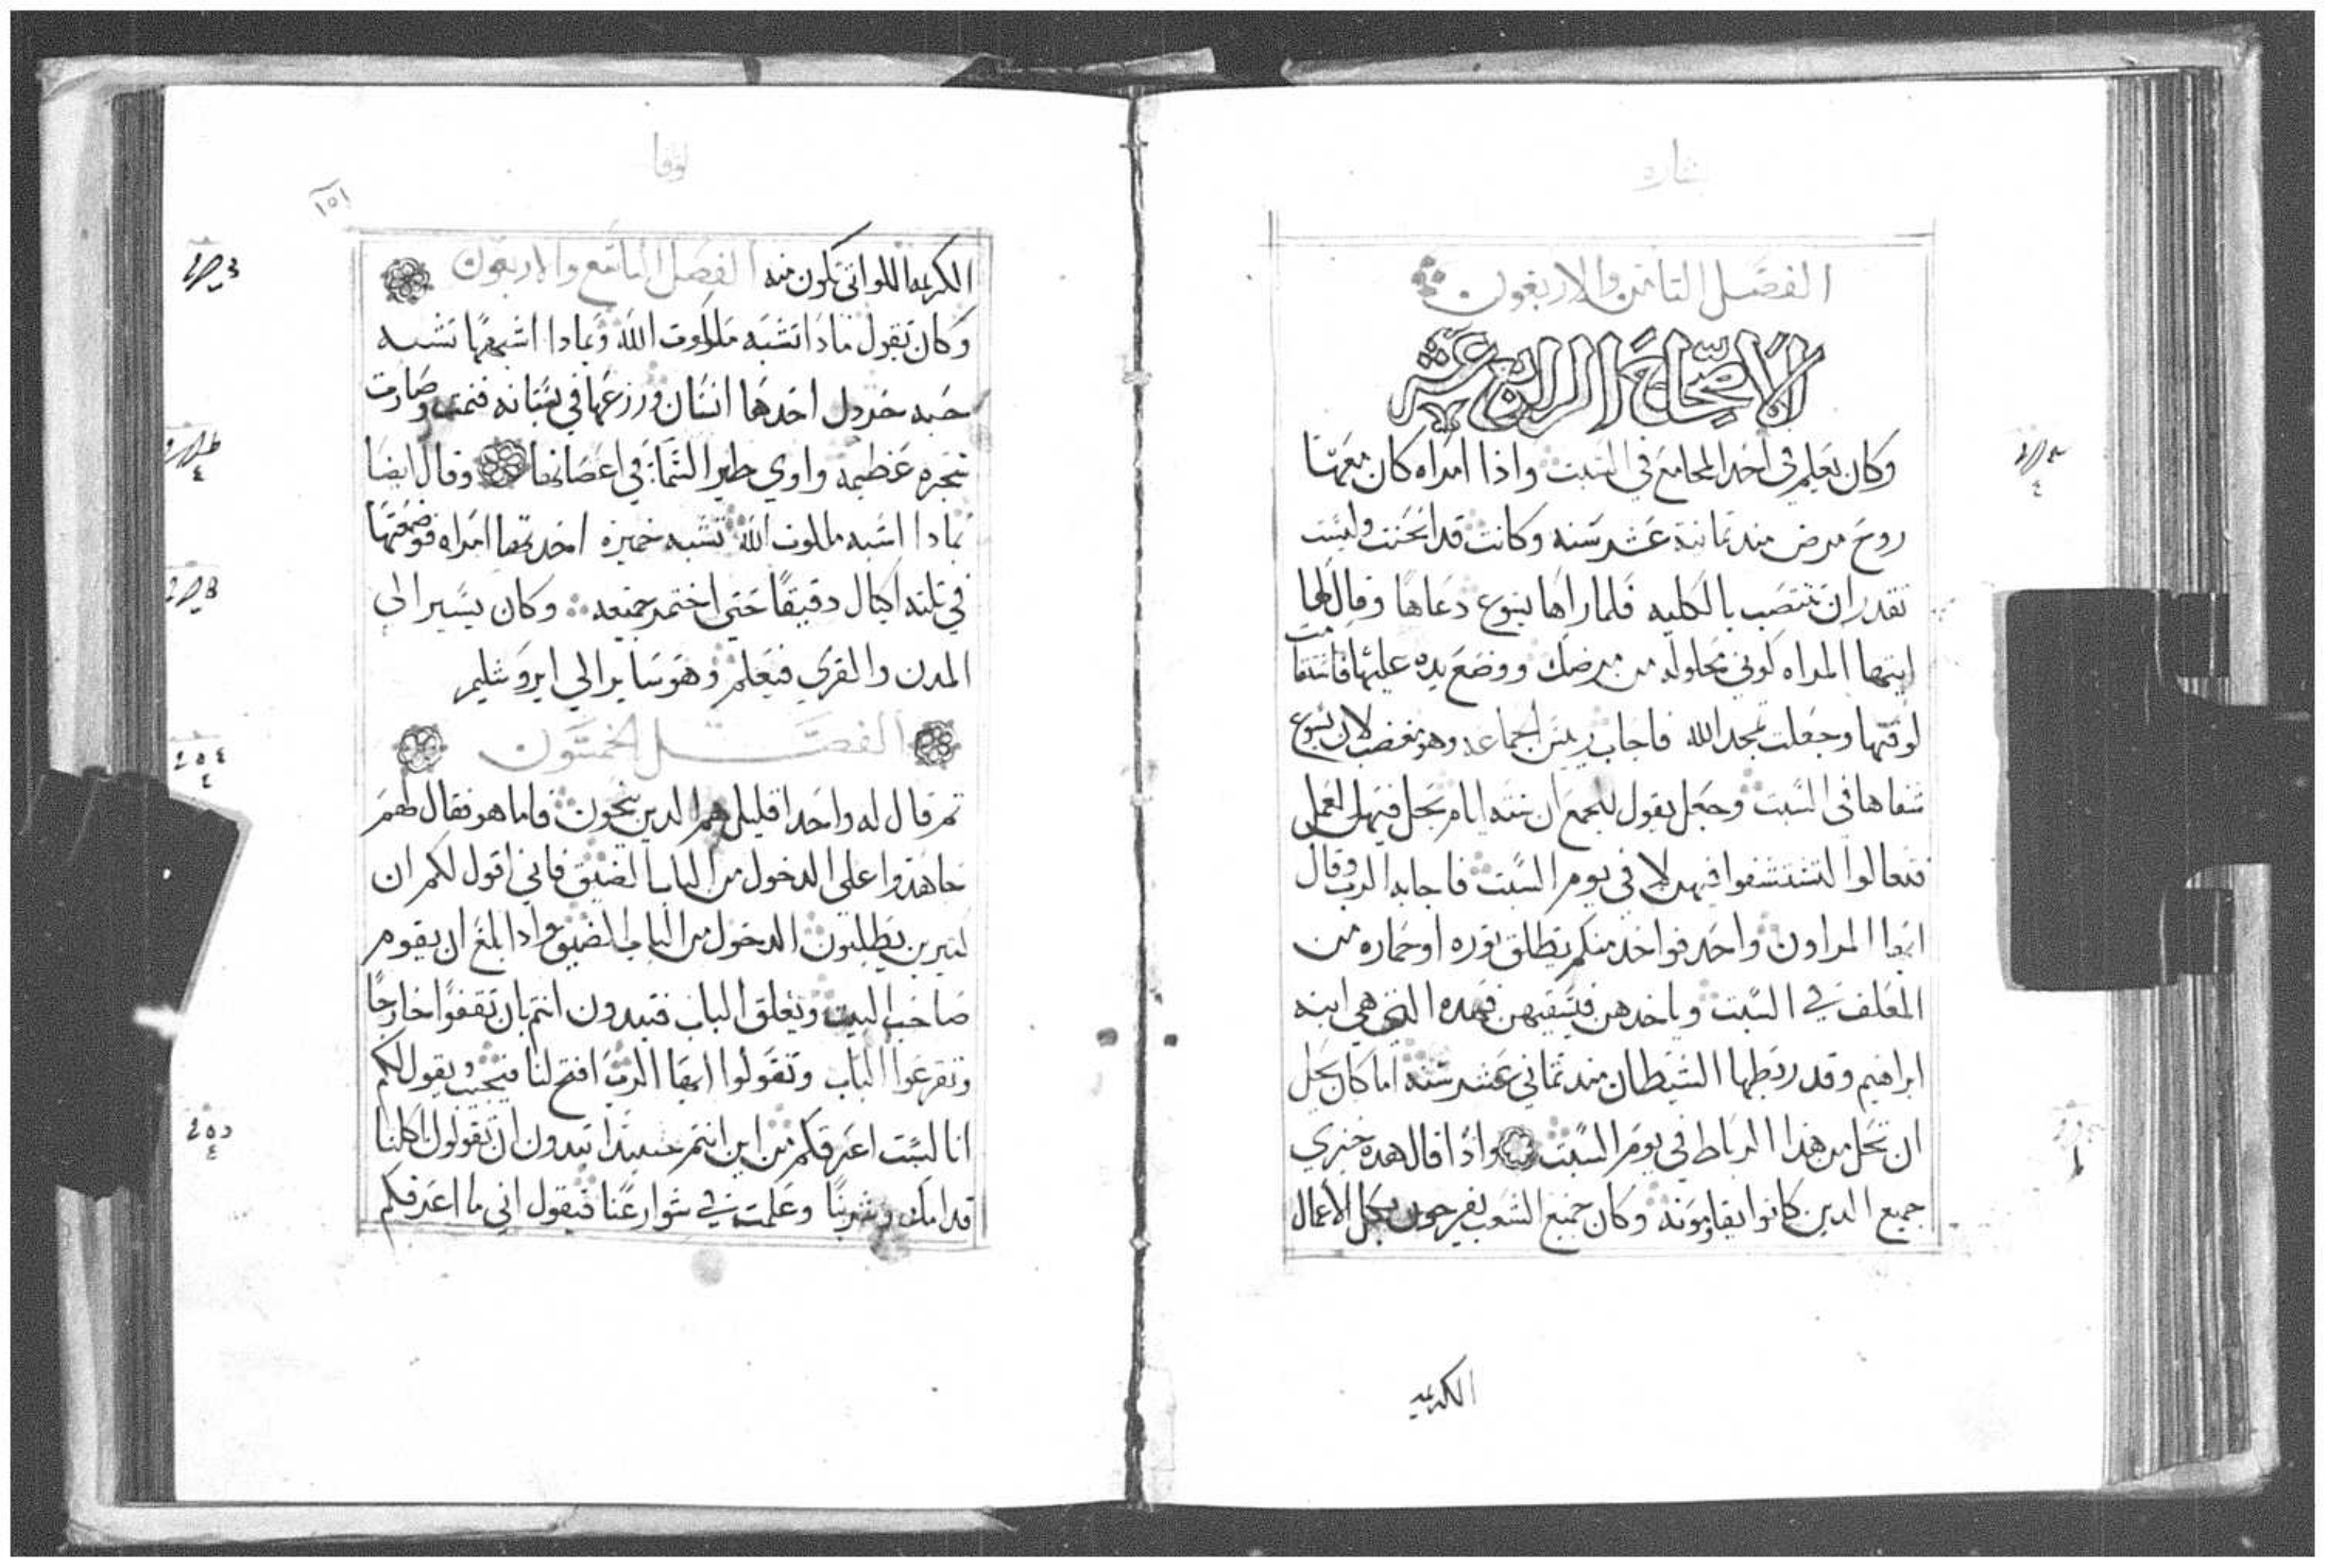 بشاره
الفصل الثامن والاربعون
الاصحاح الرابع عشر
وكان يعلم في احد المجامع في السبت واذا امراه كان معها
روح مرض مند تمانية عشر سنه وكانت قد انحنت وليست
تقدر ان تنتصب بالكليه فلما راها يسوع دعاها وقال لها
ايتها المراه كوني محلوله من مرضك ووضع يده عليها فاستقامت
لوقتها وجعلت تمجد الله فاجاب رييس الجماعه وهو مغضب لان يسوع
شفاها في السبت وجعل يقول للجمع ان سته ايام يحل فيهن العمل
فتعالوا لتستشفوا فيهن لا في يوم السبت فاجابه الرب وقال
ايها المراون واحد فواحد منكم يطلق توره او حماره من
المعلف في السبت وياخدهن فيسقيهن فهده التي هي ابنه
ابراهيم وقد ربطها الشيطان مند تماني عشر سنه اما كان يحل
ان تحل من هذا الرباط في يوم السبت واذا قال هده خزي
جميع الدين كانوا يقاومونه وكان جميع الشعب يفرحون بكل الاعمال
الكريمه
لوقا
١٥١
الكريمه اللواتي تكون منه الفصل التاسع والاربعون
وكان يقول مادا تشبه ملكوت الله وبمادا اشبهها تشبه
حبه خردل اخدها انسان وزرعها في بستانه فنمت وصارت
شجره عظيمه واوي طير السما في اغصانها وقال ايضا
بمادا اشبه ملكوت الله تشبه خميره اخدتها امراه فوضعتها
في تلته اكيال دقيقا حتي اختمر جميعه وكان يسير الي
المدن والقري فيعلم وهو ساير الي ايروشليم
الفصل الخمسون
تم قال له واحد اقليل هم الدين ينجون فاما هو فقال لهم
جاهدوا علي الدخول من الباب الضيق فاني اقول لكم ان
كتيرين يطلبون الدخول من الباب الضيق وادا بلغ ان يقوم
صاحب البيت ويغلق الباب فتبدون انتم بان تقفوا خارجا
وتقرعوا الباب وتقولوا ايها الرب افتح لنا فيجيب ويقول لكم
انا لست اعرفكم من اين انتم حينيدا تبدون ان تقولون اكلنا
قدامك وشربنا وعلمت في شوارعنا فيقول اني ما اعرفكم